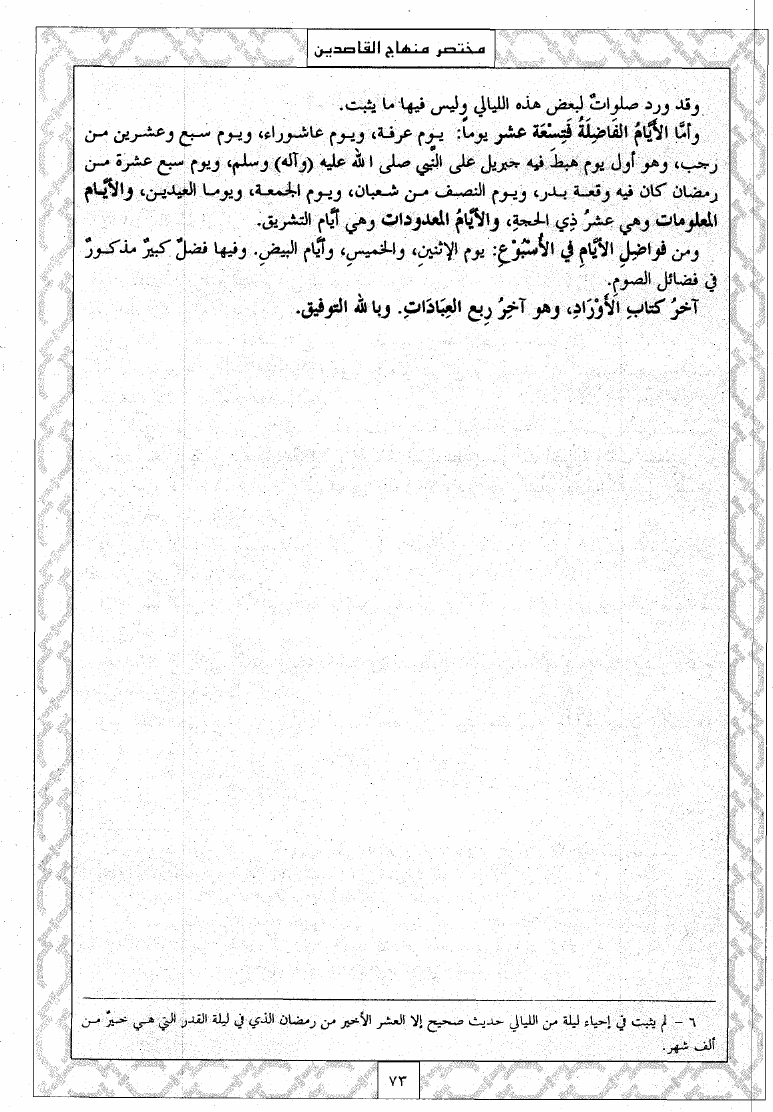 مختصر منهاج القاصدين
وقد ورد صلواتٌ لبعض هذه الليالي وليس فيها ما يثبت.
وأمَّا الأَيَّامُ الفَاضِلَةُ فَتِسْعَة عشر يوماً: يوم عرفة، ويوم عاشوراء، ويوم سبع وعشرين من
رجب، وهو أول يوم هبطَ فيه جبريل على النَّبي صلى الله عليه (وآله) وسلم، ويوم سبع عشرة من
رمضان كان فيه وقعة بدر، ويوم النصف من شعبان، ويوم الجمعة، ويوما العيدين، والأيَّام
المعلومات وهي عشرُ ذي الحجةِ، والأيَّامُ المعدودات وهي أيَّام التشريق.
ومن فواضِلِ الأيَّامِ في الأُسْبُوْعِ: يوم الإثنينِ، والخميسِ، وأيَّام البيضِ. وفيها فضلٌ كبيرٌ مذكورٌ
في فضائل الصومِ.
آخرُ كتابِ الأَوْرَادِ، وهو آخِرُ رِبع العِبَادَاتِ. وبالله التوفيق.
٦ - لم يثبت في إحياء ليلة من الليالي حديث صحيح إلا العشر الأخير من رمضان الذي في ليلة القدر التي هي خيرٌ من
ألف شهر.
٧٣